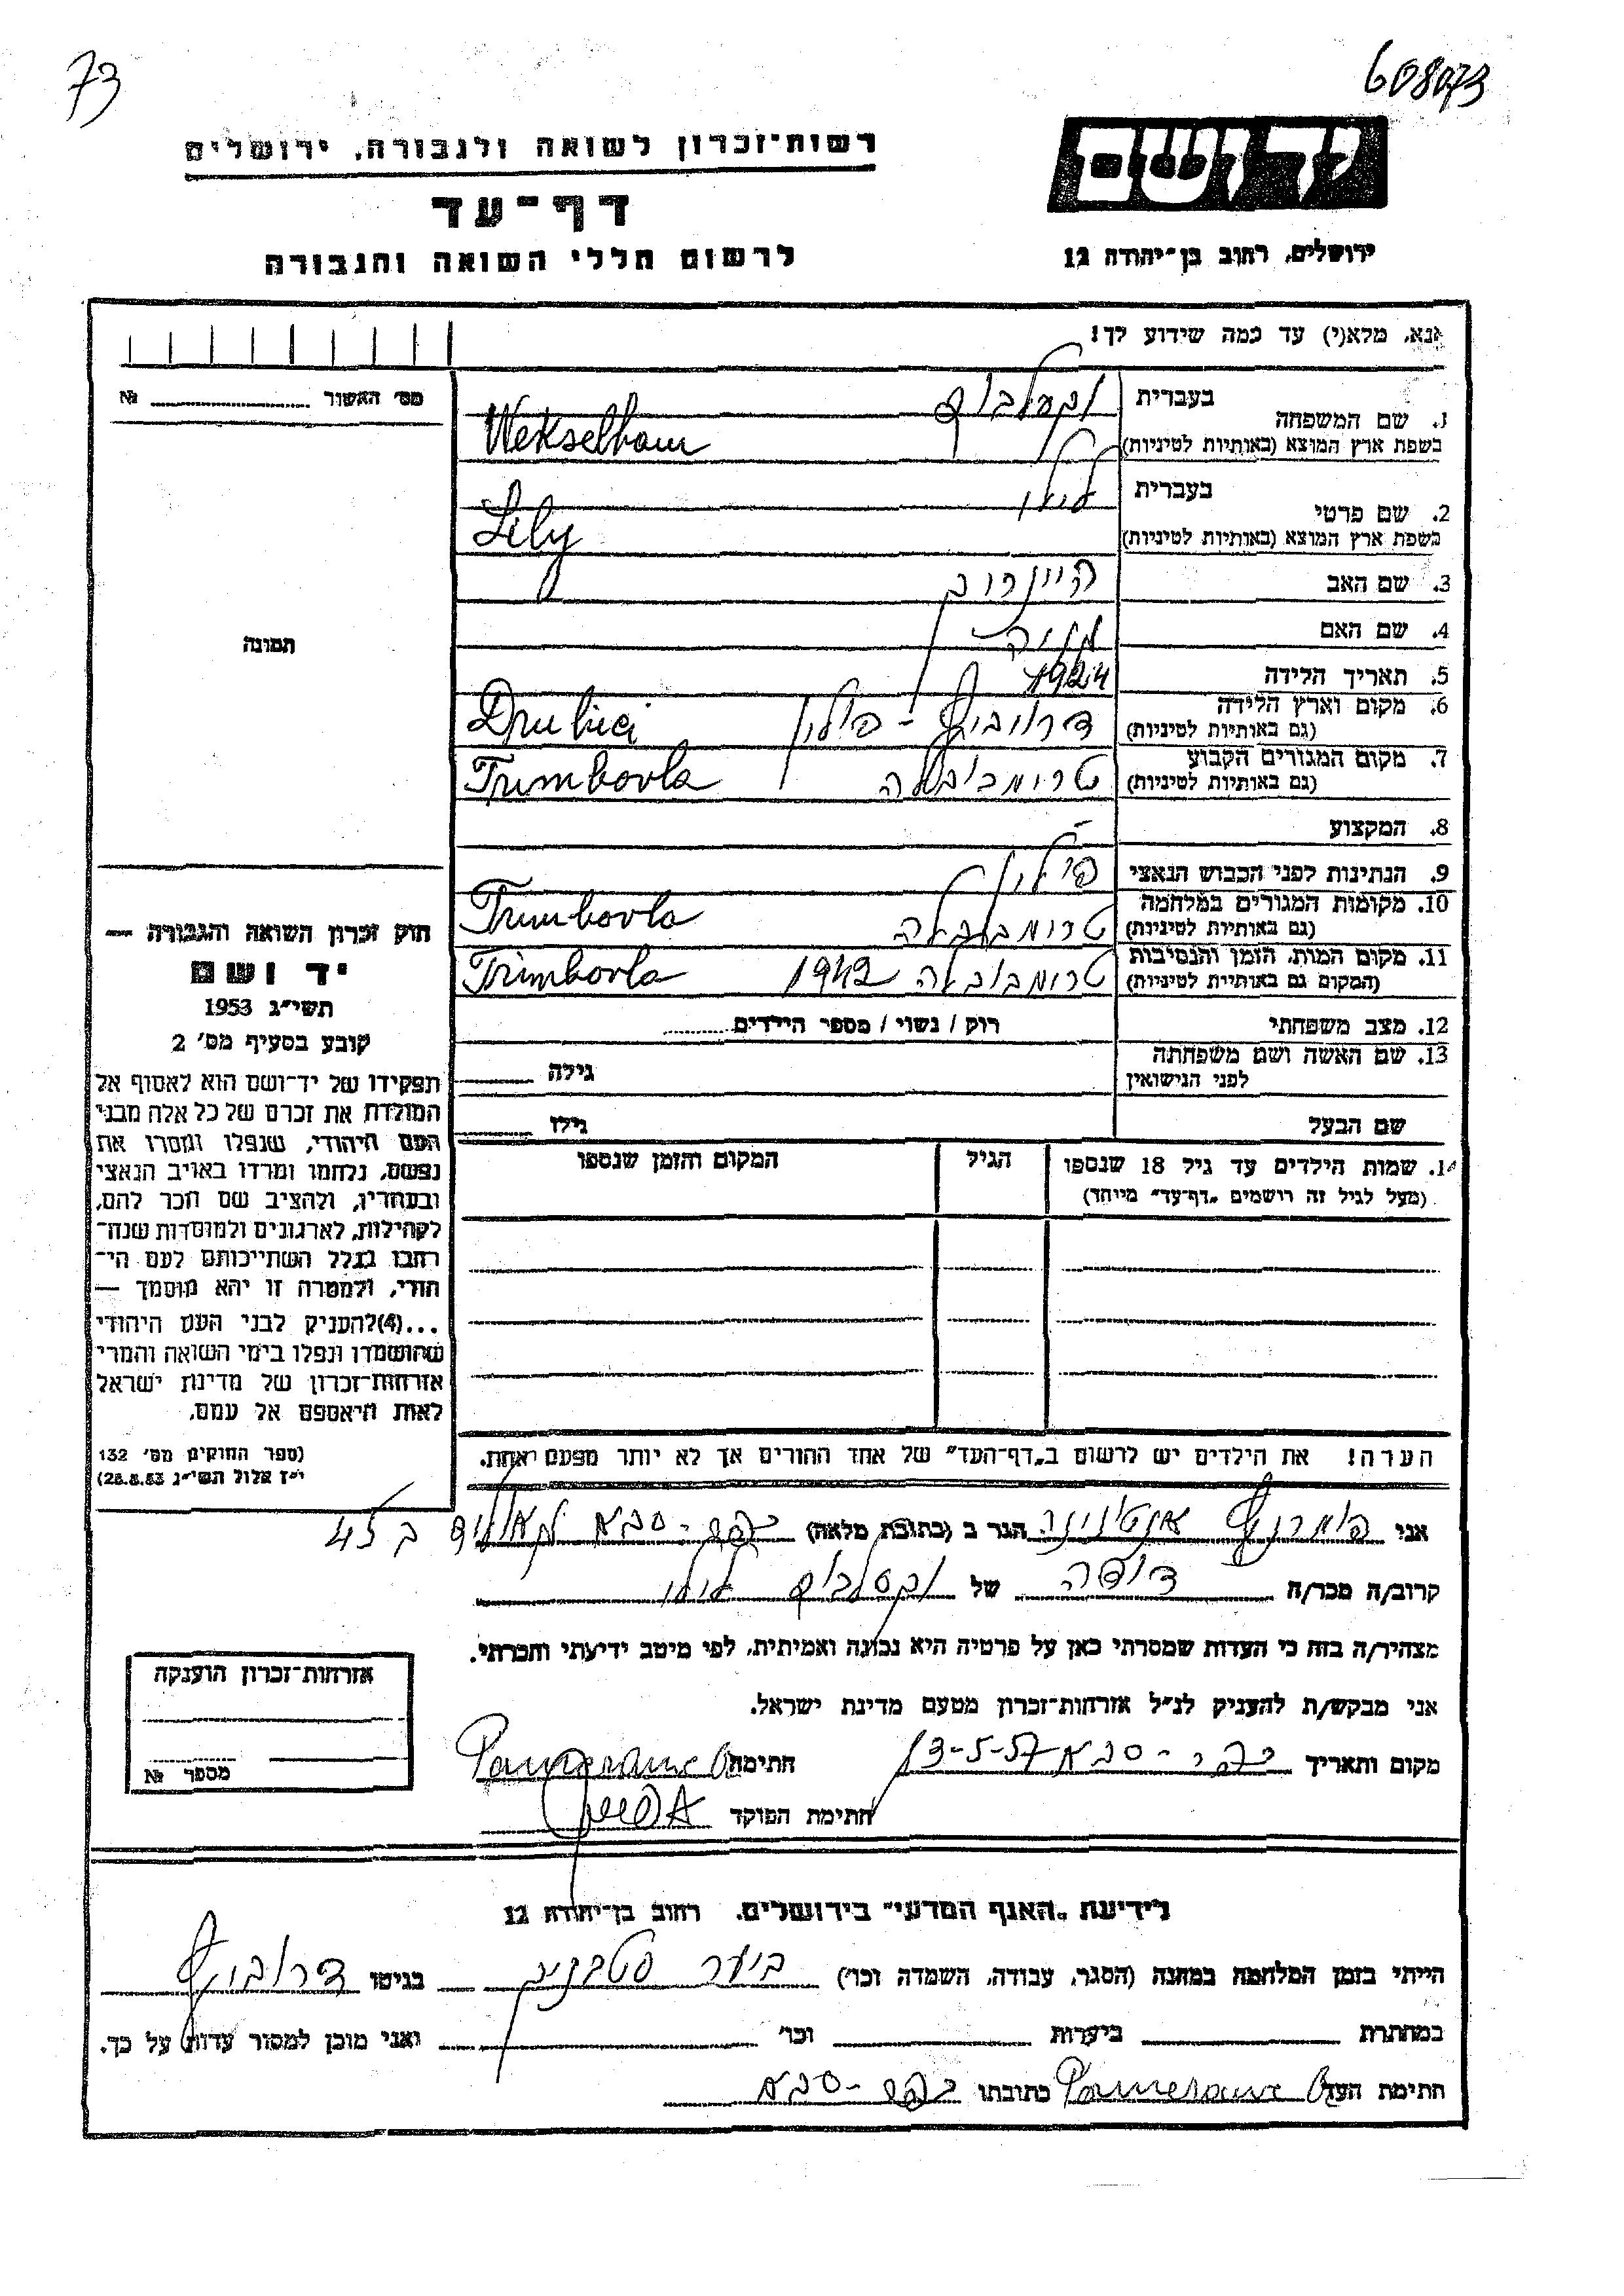 73
608073
יד ושם
רשות־זכרון לשואה ולגבורה, ירושלים
דף־עד
לרשום חללי השואה והגבורה
ירושלים, רחוב בן־יהודה 12
אנא, מלא(י) עד כמה שידוע לך!
מס׳ האשור № 
1. שם המשפחה
בעברית
בשפת ארץ המוצא (באותיות לטיניות)
Wekselbaum
2. שם פרטי
בעברית לילי
בשפת ארץ המוצא (באותיות לטיניות)
Lily
3. שם האב היינריך
4. שם האם
5. תאריך הלידה 1924
6. מקום וארץ הלידה
(גם באותיות לטיניות)
פולין
7. מקום המגורים הקבוע
(גם באותיות לטיניות)
טרימבובלה Trimbovla
8. המקצוע -
9. הנתינות לפני הכבוש הנאצי
פולין
10. מקומות המגורים במלחמה
(גם באותיות לטיניות)
טרימבובלה Trimbovla
11. מקום המות, הזמן והנסיבות
(המקום גם באותיות לטיניות)
טרימבובלה 1942 Trimbovla
12. מצב משפחתי רוק / נשוי / מספר הילדים
13. שם האשה ושם משפחתה
לפני הנישואין
גילה
שם הבעל גילו
14. שמות הילדים עד גיל 18 שנספו
(מעל לגיל זה רושמים „דף־עד” מיוחד)
הגיל
המקום והזמן שנספו
הערה! את הילדים יש לרשום ב„דף־העד” של אחד ההורים אך לא יותר מפעם אחת.
תמונה
חוק זכרון השואה והגבורה —
יד ושם
תשי״ג 1953
קובע בסעיף מס׳ 2
תפקידו של יד־ושם הוא לאסוף אל
המולדת את זכרם של כל אלה מבני
העם היהודי, שנפלו ומסרו את
נפשם, נלחמו ומרדו באויב הנאצי
ובעוזריו, ולהציב שם וזכר להם,
לקהילות, לארגונים ולמוסדות שנח־
רבו בגלל השתייכותם לעם הי־
הודי, ולמטרה זו יהא מוסמך —
...(4)להעניק לבני העם היהודי
שהושמדו ונפלו בימי השואה והמרי
אזרחות־זכרון של מדינת ישראל
לאות היאספם אל עמם.
(ספר החוקים מס׳ 132
י״ז אלול תשי״ג 28.8.53)
אני הגר ב (כתובת מלאה) כפר-סבא
קרוב/ה מכר/ה דודה של וקסלבוים לילי
מצהיר/ה בזה כי העדות שמסרתי כאן על פרטיה היא נכונה ואמיתית, לפי מיטב ידיעתי והכרתי.
אני מבקש/ת להעניק לנ״ל אזרחות־זכרון מטעם מדינת ישראל.
מקום ותאריך כפר-סבא 13-5-57 חתימה
חתימת הפוקד
אזרחות־זכרון הוענקה
מספר №
לידיעת „האגף המדעי” בירושלים, רחוב בן־יהודה 12
הייתי בזמן המלחמה במחנה (הסגר, עבודה, השמדה וכו׳) בגיטו
במחתרת ביערות וכו׳ ואני מוכן למסור עדות על כך.
חתימת העד כתובתו כפר-סבא